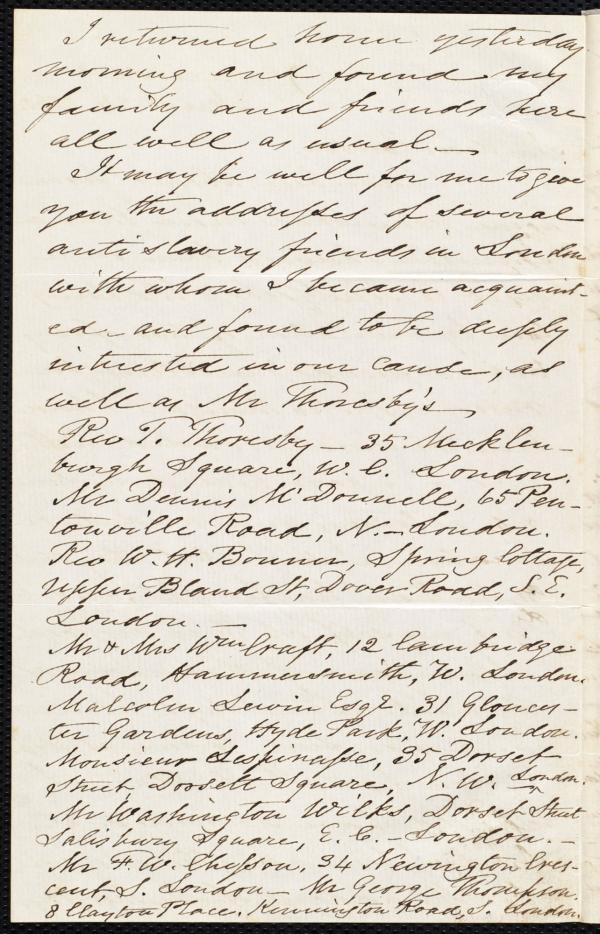 I returned home yesterday
morning and found my
family and friends here
all well as usual. —
It may be well for me to give
you the addresses of several
anti slavery friends in London
with whom I became acquaint-
ed - and found to be deeply
interested in our cause, as
well as Mr Thoresby's
Rev T. Thoresby — 35 Mecklen-
burgh Square, W. C. London.
Mr Dennis McDonnell, 65 Pen-
tonville Road, N. — London.
Rev W. H. Bonner, Spring Cottage,
Upper Bland St, Dover Road, S. E.
London. —
Mr & Mrs Wm Craft, 12 Cambridge
Road, Hammersmith, W. London.
Malcolm Lewin Esqr. 31 Glouces-
ter Gardens, Hyde Park, W. London.
Monsieur Lespinasse, 35 Dorset
Street, Dorsett Square, N. W. London.
Mr Washington Wilks, Dorset Street
Salisbury Square, E. C. — London. —
Mr F. W. Chesson, 34 Newington Cres-
cent, S. London — Mr George Thompson.
8 Clayton Place, Kennington Road, S. London.